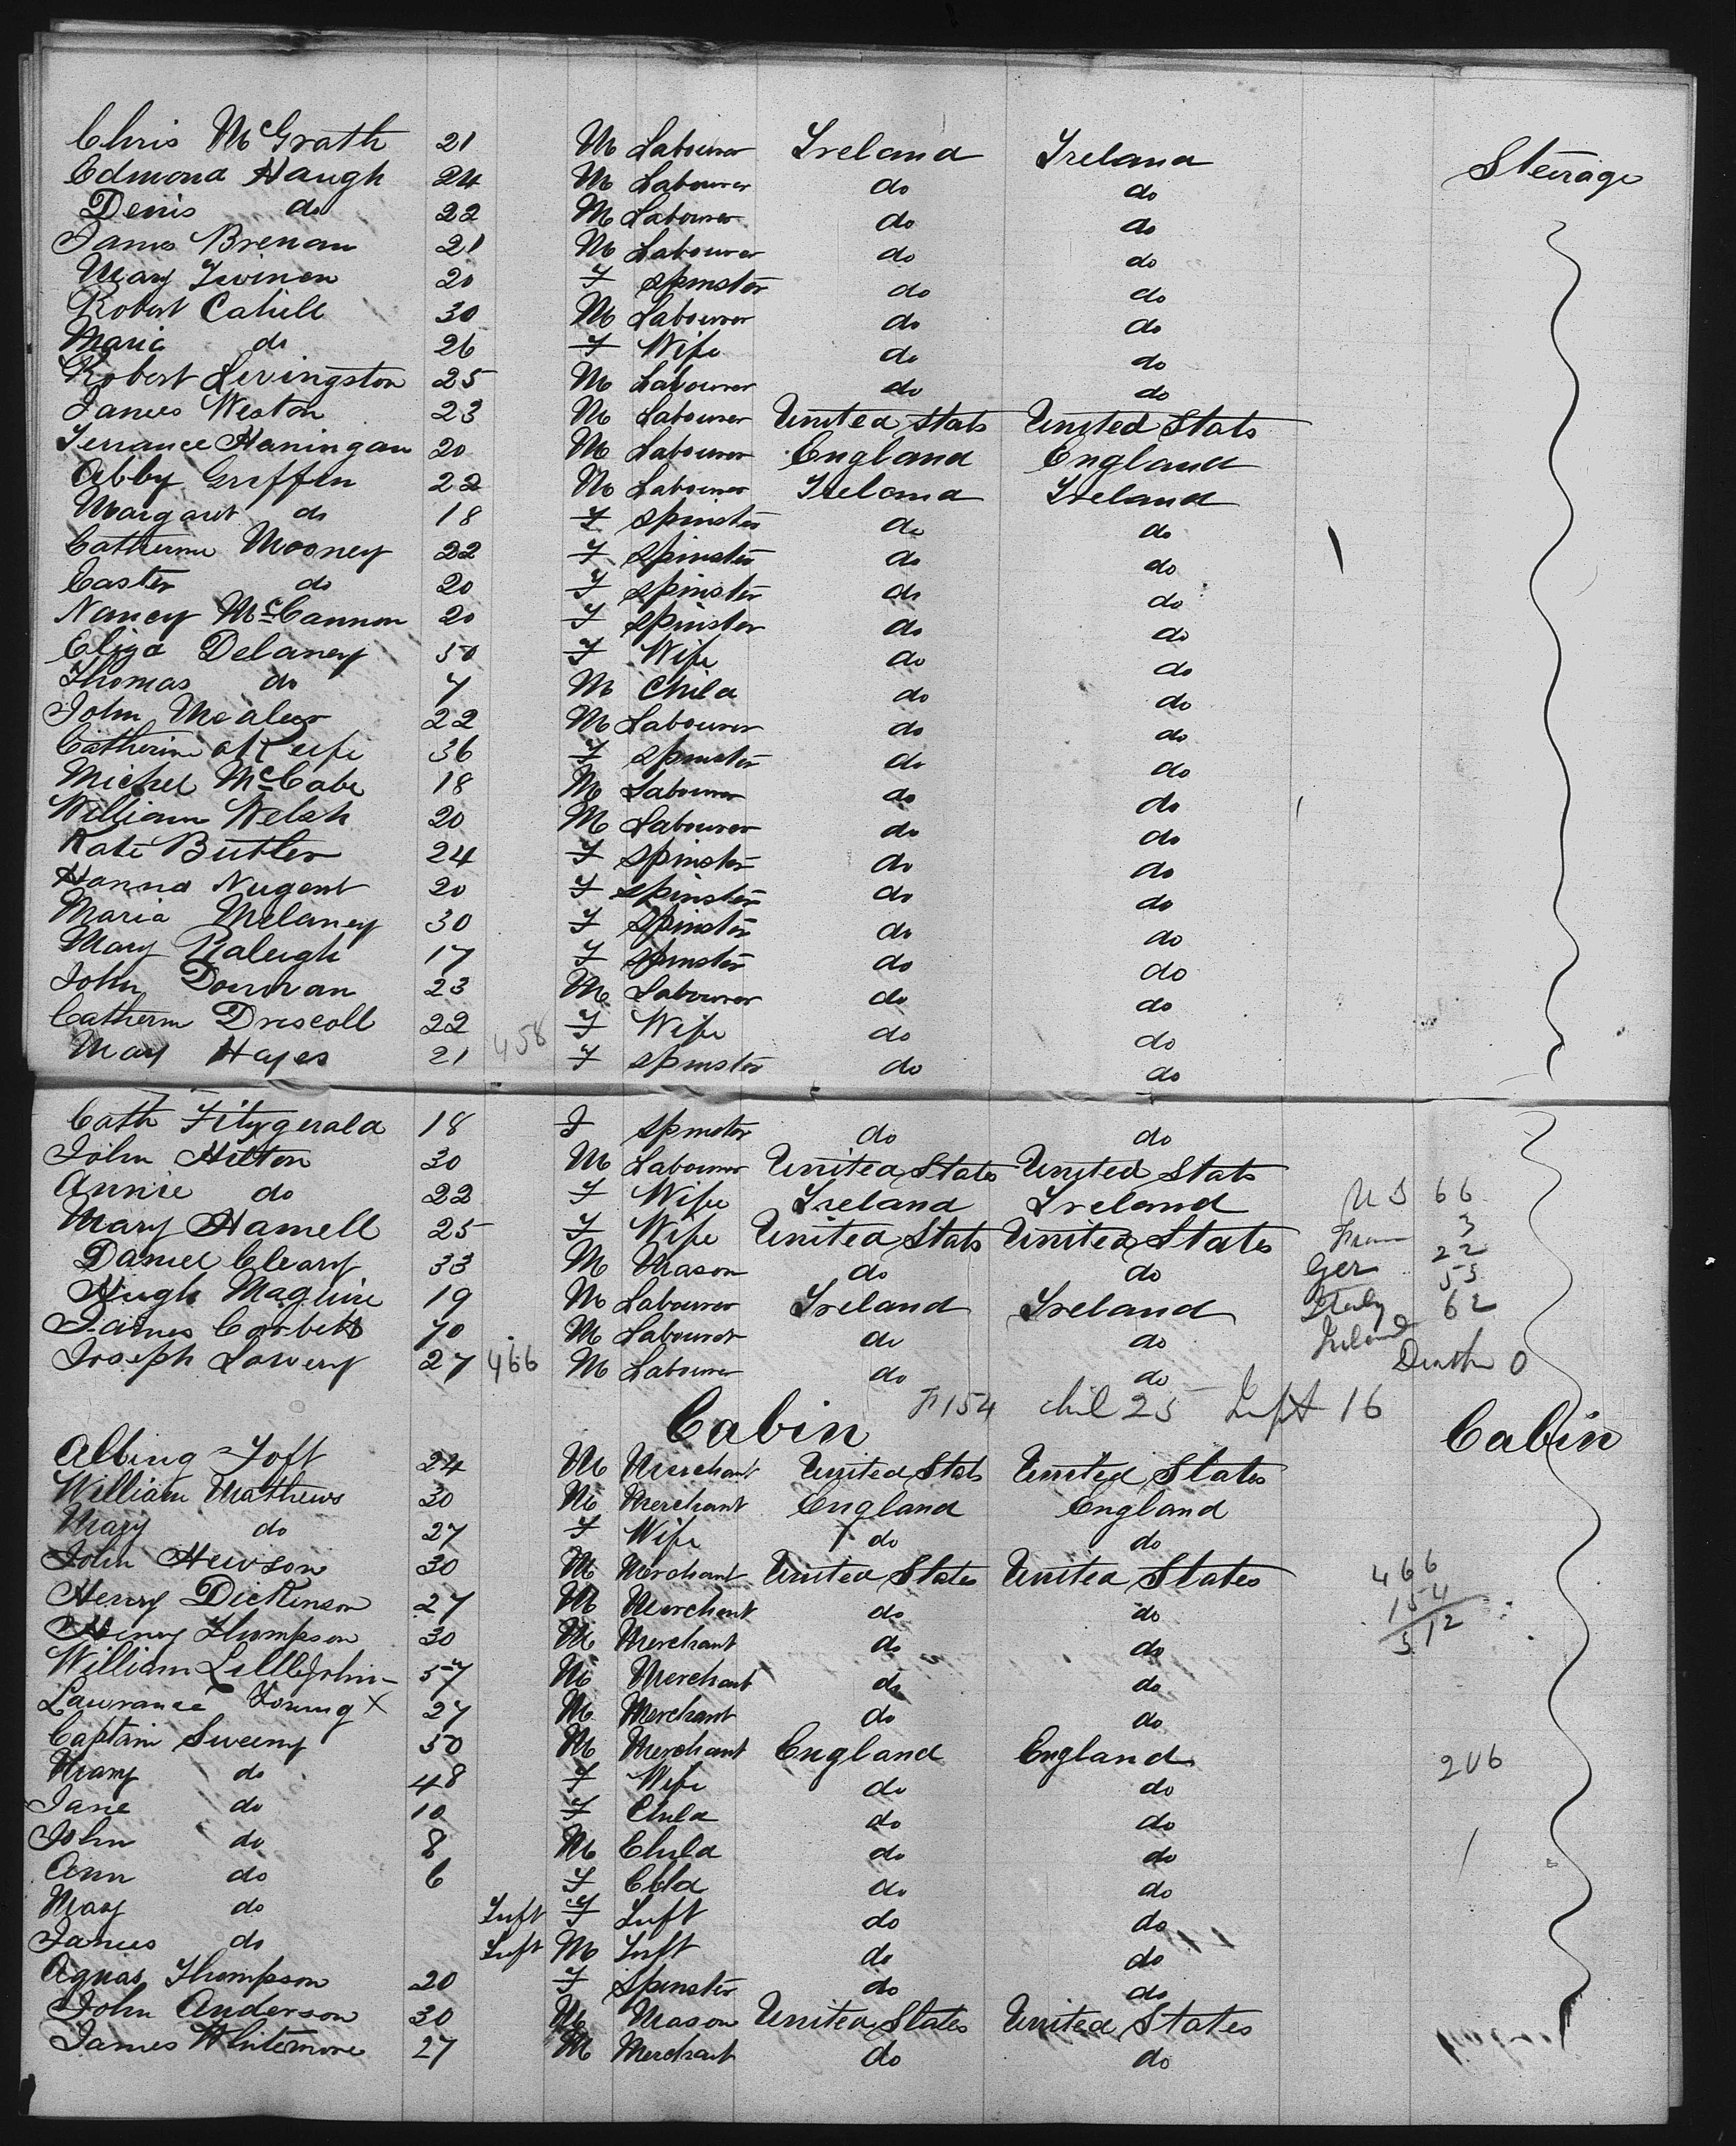 Chris McGrath 21 M Labourer Ireland Ireland Steirage
Edmond Haugh 24 M Labourer do do
Denis do 22 M Labourer do do
James Brenan 21 M Labourer do do
Mary 20 F Spinster do do
Robert Cahill 30 M Labourer do do
Maria do 26 F Wife do do
Robert Levingston 25 M Labourer do do
James Weston 23 M Labourer United Stats United Stats
Terrance Haningan 20 M Labourer England England
Abby Griffin 22 M Labourer Ireland Ireland
Margaret do 18 F Spinster do do
Catherine Mooney 22 F Spinster do do
Easter do 20 F Spinster do do
Nancy McCannon 20 F Spinster do do
Eliza Delaney 50 F Wife do do
Thomas do 7 M Child do do
John 22 M Labourer do do
Catherine oKeefe 36 F Spinster do do
Michel McCabe 18 M Labourer do do
William Welsh 20 M Labourer do do
Kate Butler 24 F Spinster do do
Hanna Nugent 20 F Spinster do do
Maria Melaney 30 F Spinster do do
Mary Raleigh 17 F Spinster do do
John Dorman 23 M Labourer do do
Catherin Driscoll 22 458 F Wife do do
Mary Hayes 21 F Spinster do do
Cath Fitzgerald 18 F Spinster do do
John Hilton 30 M Labourer United States United Stats
Annie do 22 F Wife Ireland Ireland U S 66
Mary Hamell 25 F Wife United Stats United States Fran 3
Daniel Cleary 33 M Mason do do Ger 22
Hugh Maguire 19 M Labourer Ireland Ireland Italy 53
James Corbett 70 M Labourer do do Ireland 62
Joseph Lowery 27 466 M Labourer do do Deaths 0
Cabin F 154 chil 25 Inft 16 Cabin
Albing Toft 24 M Merchant United Stats United States
William Mathews 30 M Merchant England England
Mary do 27 F Wife do do
John Hewson 30 M Merchant United States United States 466
Henry Dickinson 27 M Merchant do do 154
Henry Thompson 30 M Merchant do do 312
William Littlejohn 57 M Merchant do do
Lawrance Young X 27 M Merchant do do
Captain Sweeny 50 M Merchant England England 206
Mary do 48 F Wife do do
Jane do 10 F Child do do
John do 8 M Child do do
Ann do 6 F Child do do
Mary do Inft F Inft do do
James do Inft M Inft do do
Agnas Thompson 20 F Spinster do do
John Anderson 30 M Mason United States United States
James Whitemore 27 M Merchant do do